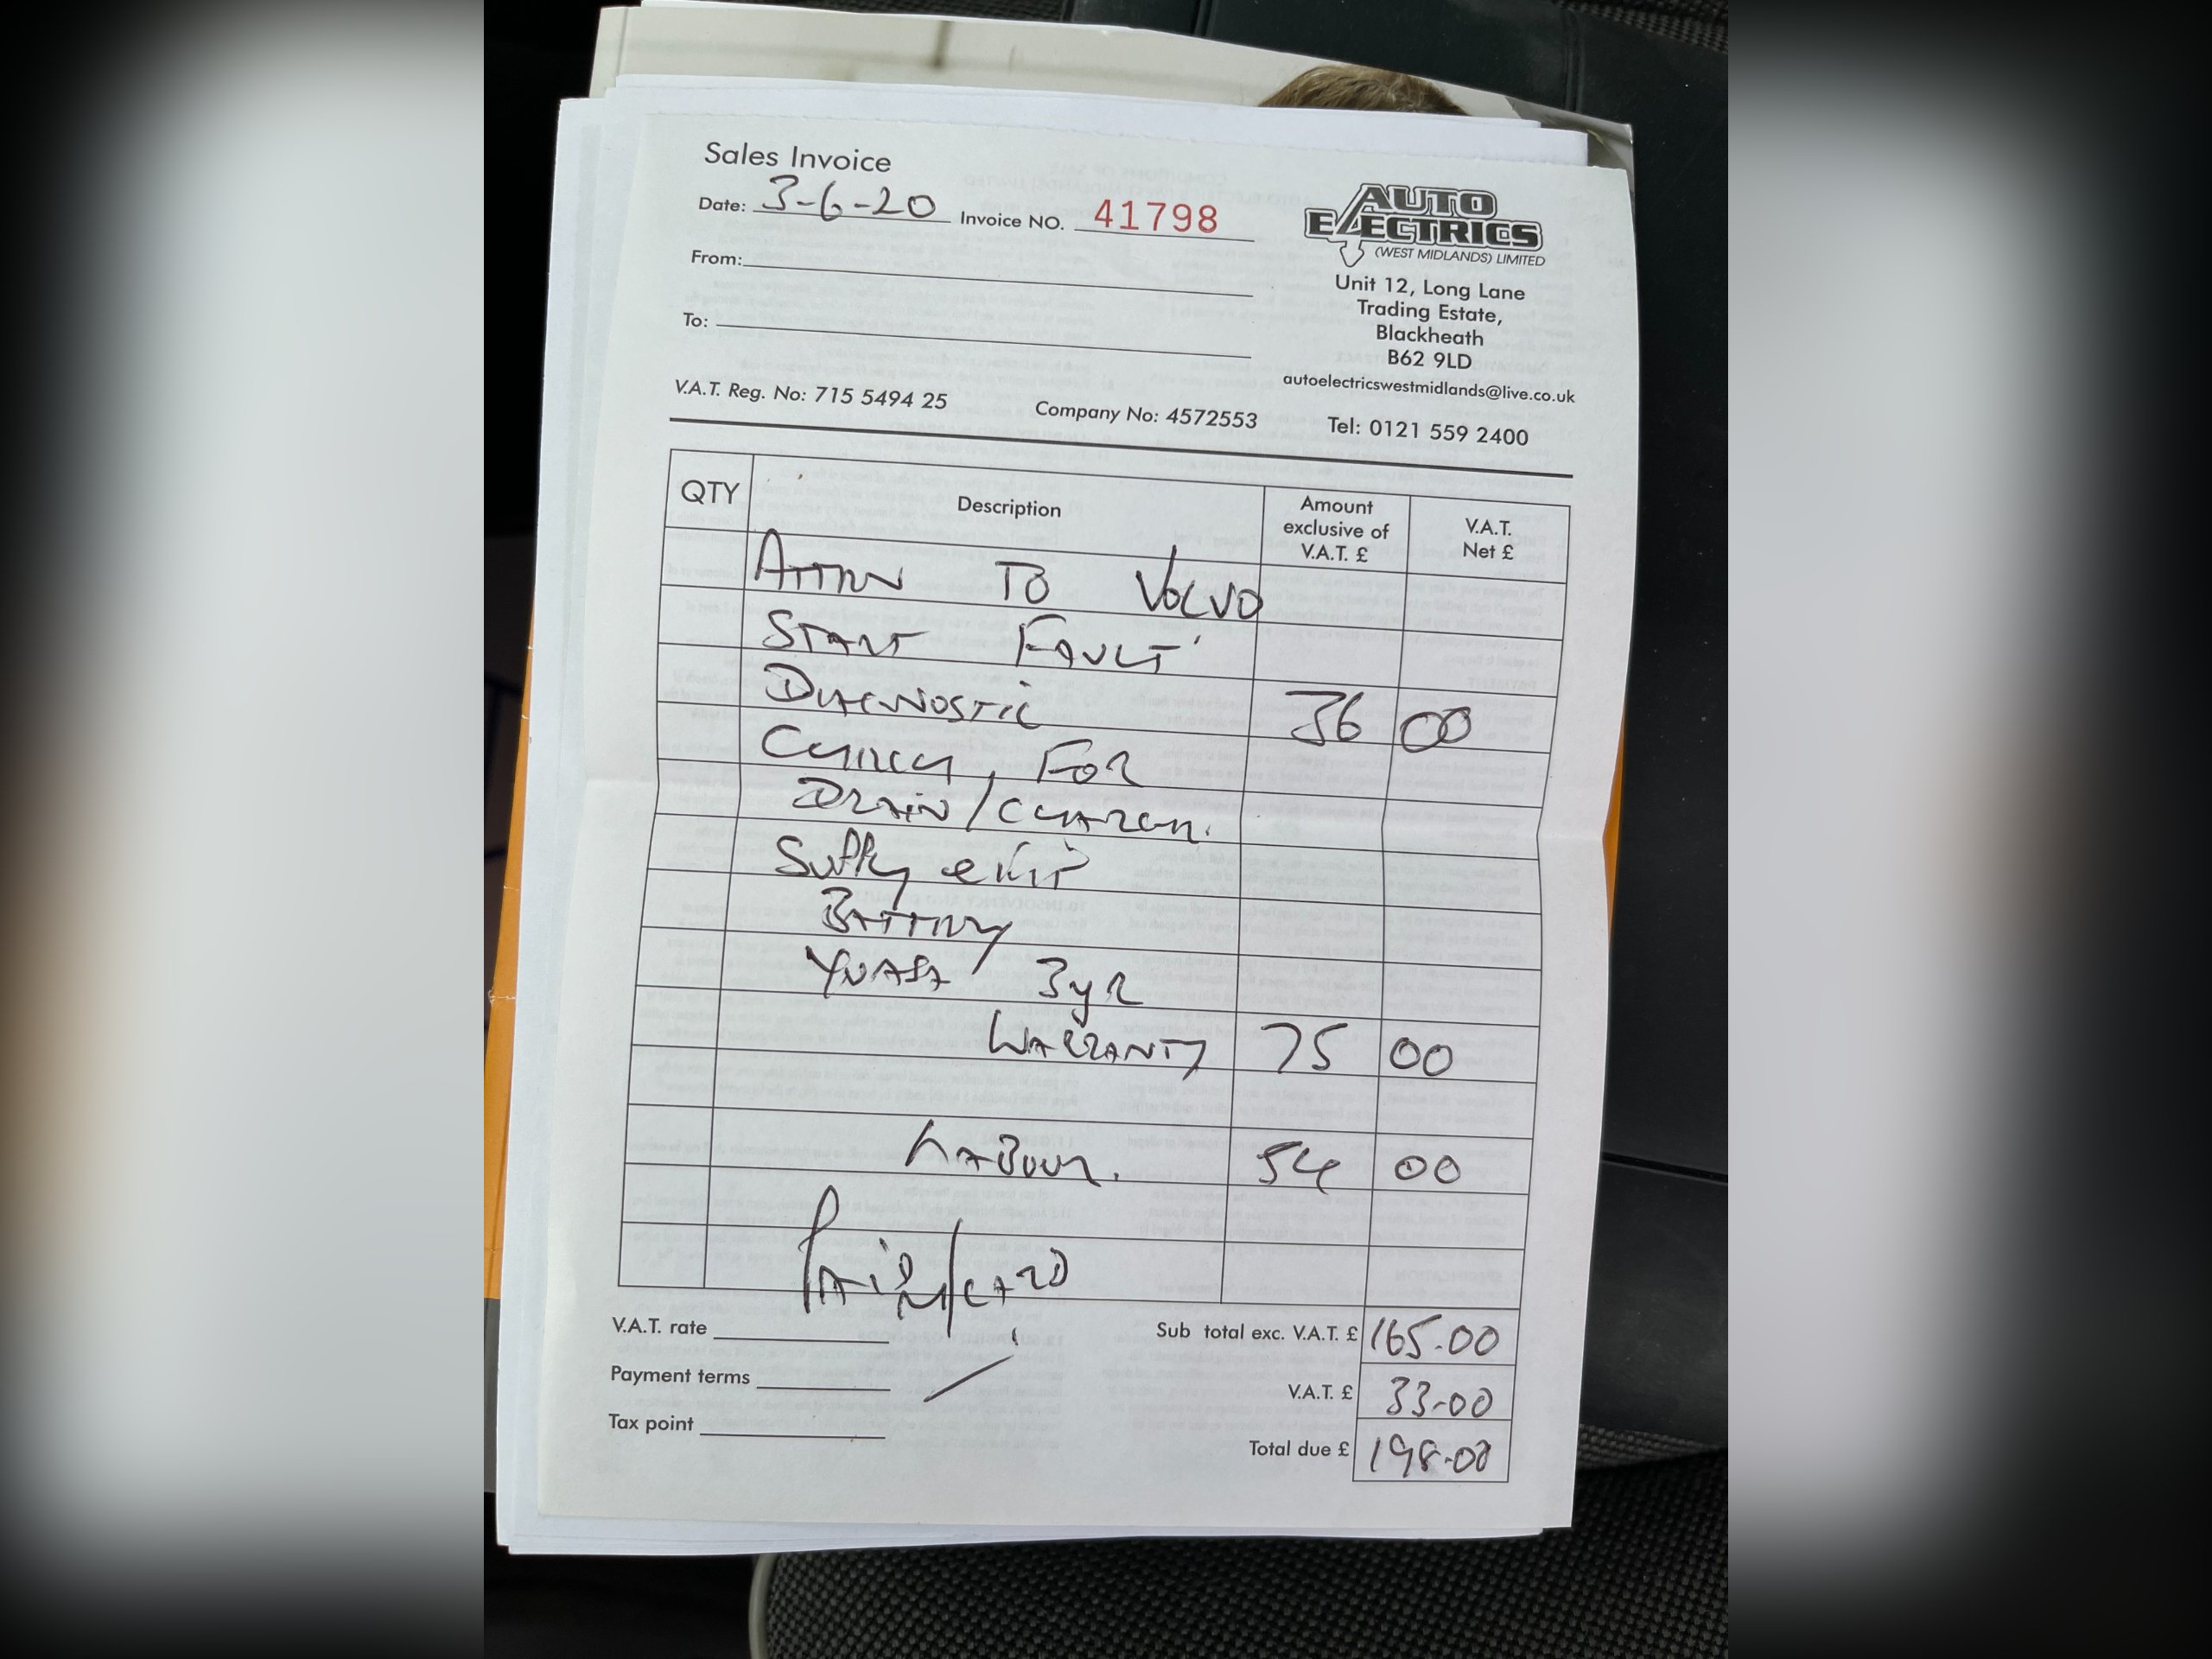 Sales Invoice
Date: 3-6-20 Invoice NO. 41798
AUTO
ELECTRICS
(WEST MIDLANDS) LIMITED
Unit 12, Long Lane
Trading Estate,
Blackheath
B62 9LD
autoelectricswestmidlands@live.co.uk
From:
To:
V.A.T. Reg. No: 715 5494 25 Company No: 4572553 Tel: 0121 559 2400
QTY Description Amount exclusive of V.A.T. £ V.A.T. Net £
TO VOLVO
START FAULT
DIAGNOSTIC 36 00
CHECK FOR
DRAIN/CHARGE.
SUPPLY & FIT
BATTERY
YUASA 3 YR
WARRANTY 75 00
LABOUR. 54 00
PAID/CARD
V.A.T. rate
Payment terms
Tax point
Sub total exc. V.A.T. £ 165.00
V.A.T. £ 33-00
Total due £ 198-00